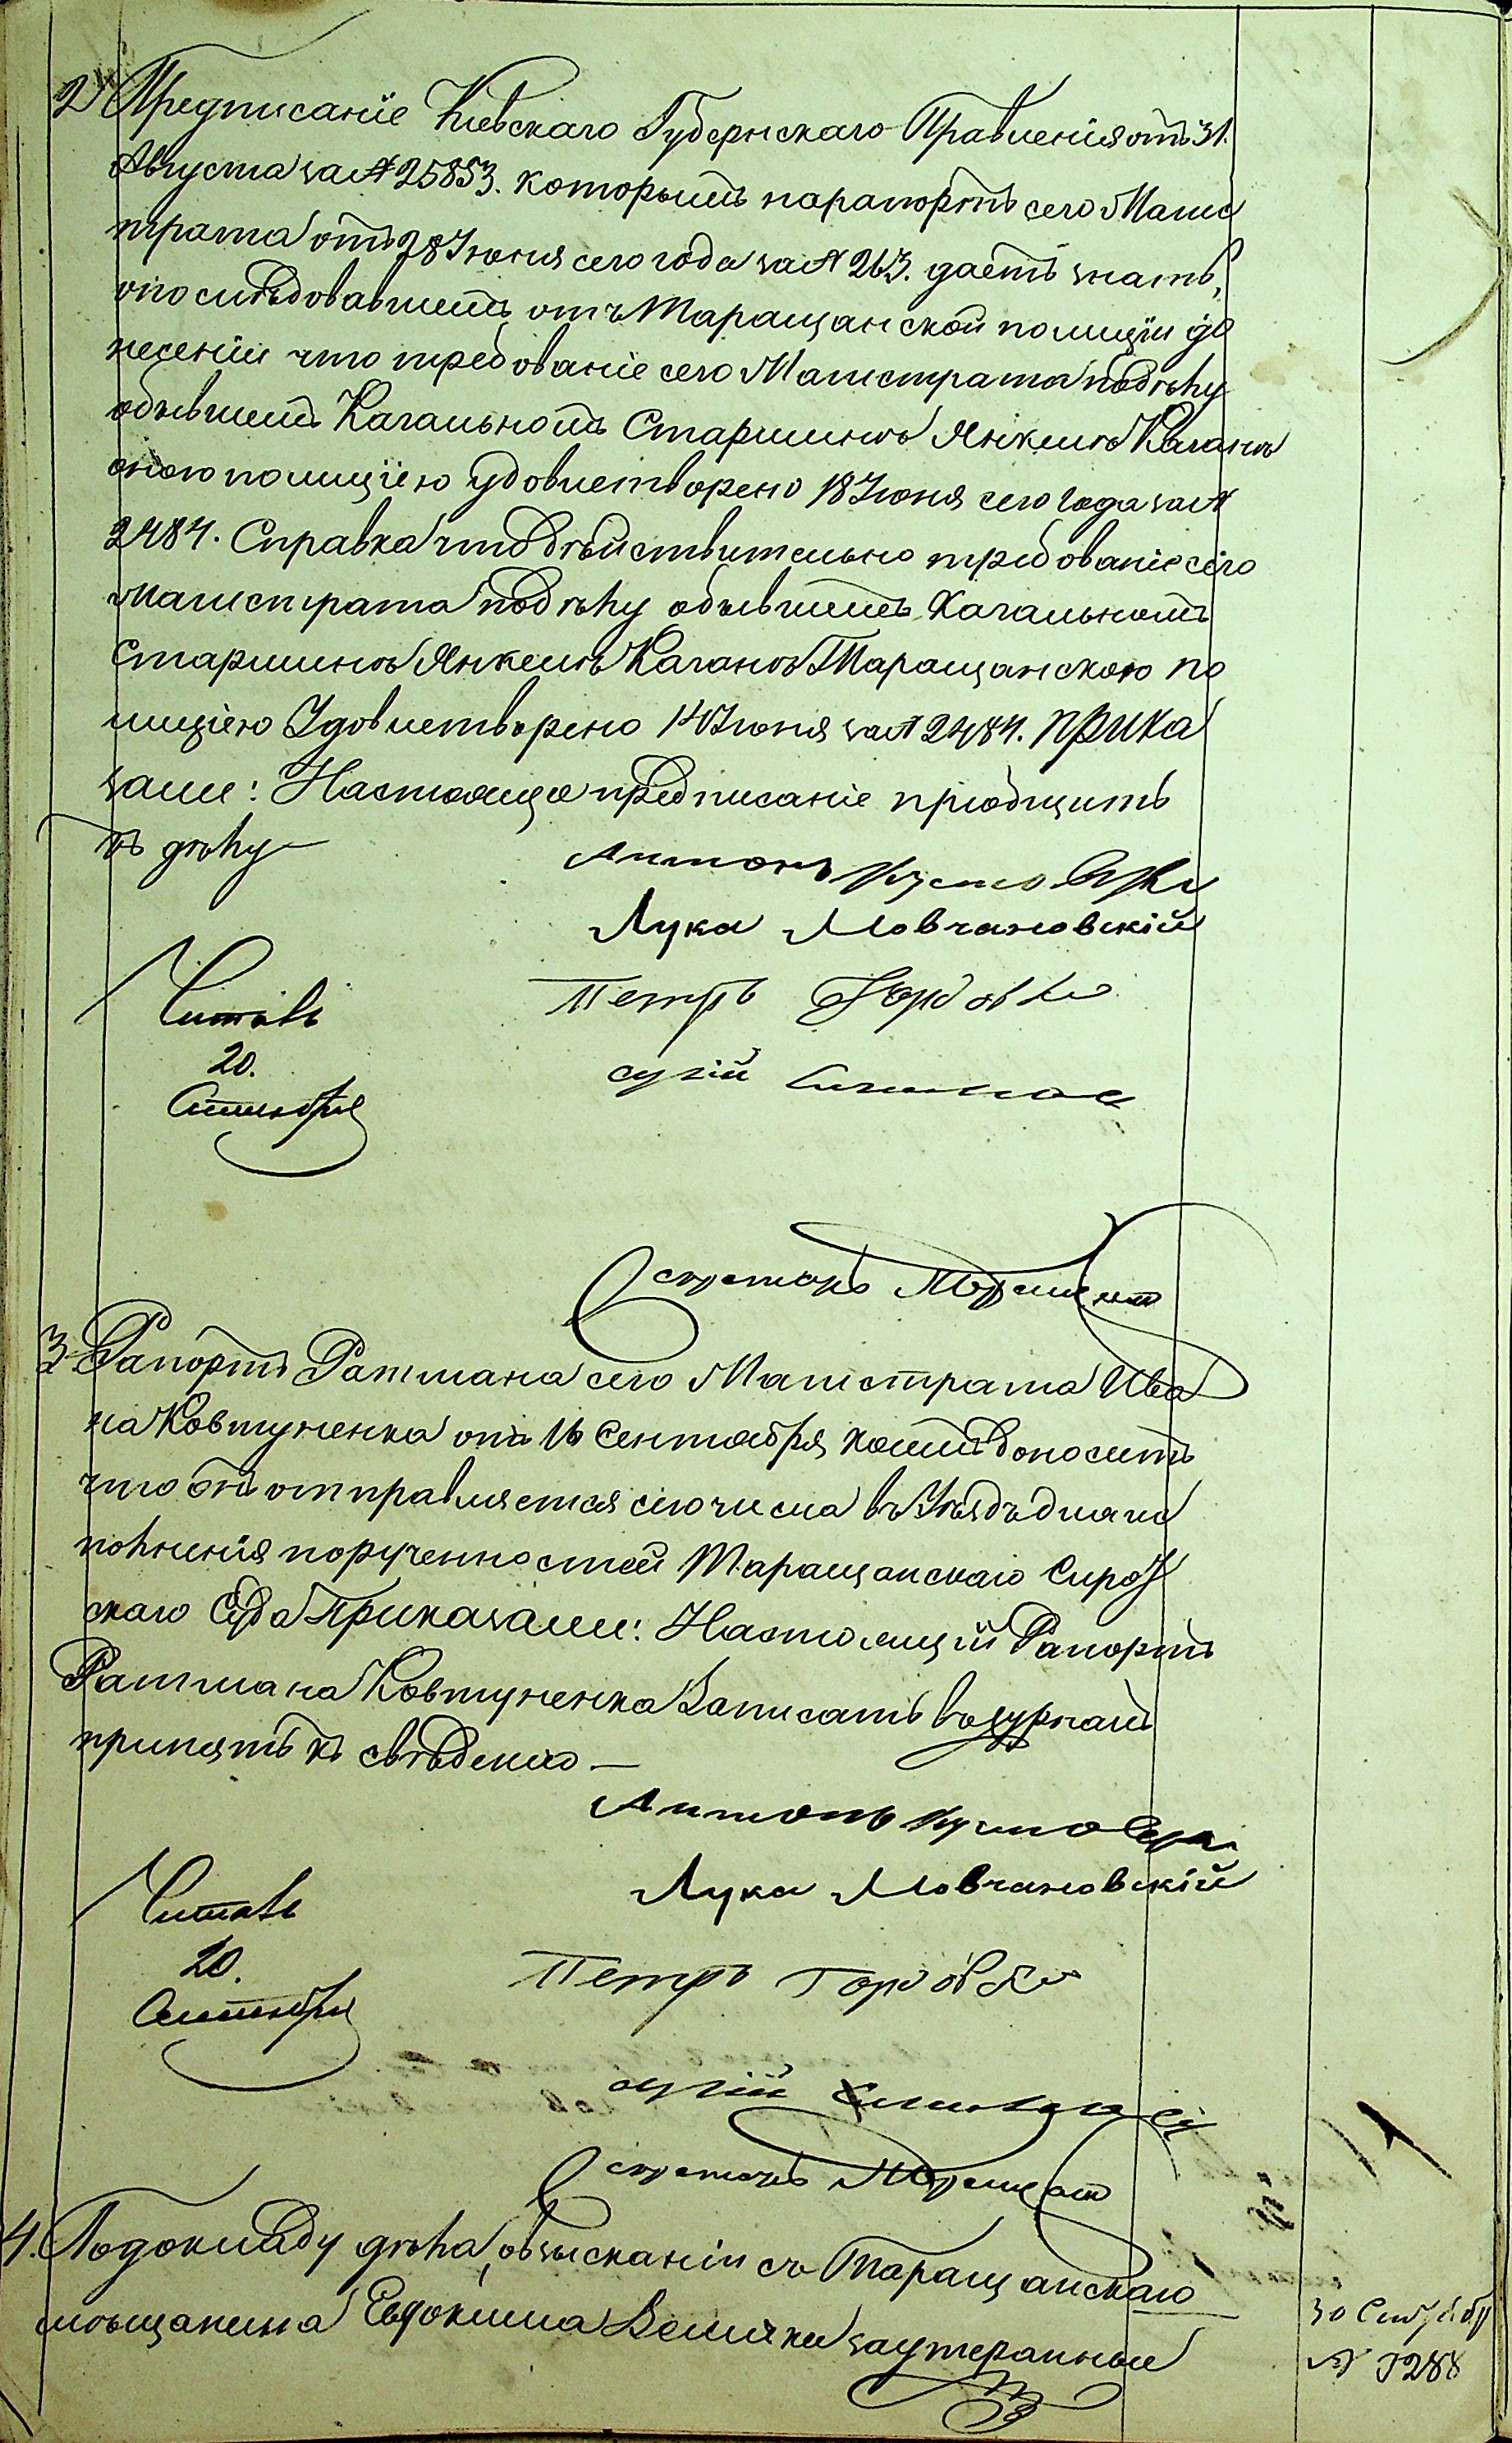 2 Предписаніе Кіевскаго Губернскаго Правленія отъ 31.
Августа за № 25853. которымъ на рапортъ сего Маги
страта отъ 28 Іюня сего года за № 263. даетъ знать,
о последовавшемъ отъ Таращанской полиціи до
несеніи что требованіе сего Магистрата по делу
о бывшемъ Кагальномъ Старшине Янкеле Кагане
оною полиціею удовлетворено 18 Іюня сего года за №
2484. Справка что действительно требованіе сего
Магистрата по делу о бывшемъ Кагальномъ
Старшине Янкеле Кагане Таращанскою по
лиціею Удовлетворено 14 Іюня за № 2484. Прика
зали: Настоящее предписаніе пріобщить
къ делу
Антонъ
Лука Мовчановскій
Петръ
Читалъ
20.
Сентября
Секретарь
3. Рапортъ Ратмана сего Магистрата Ива
на Ковтуненка отъ 16 Сентября коимъ доноситъ
что онъ отправляется сего числа въ Уездъ для ис
полненія порученностей Таращанскаго Сирот
скаго Суда Приказали: Настоящій Рапортъ
Ратмана Ковтуненка Записать въ журналъ
принять къ сведенію —
Антонъ
Лука Мовчановскій
Петръ
Читалъ
20.
Сентября
Секретарь
4. По докладу дела, о взысканіи съ Таращанскаго
мещанина Евдокима Велички за утеранные
30 Сентября
№ 3288